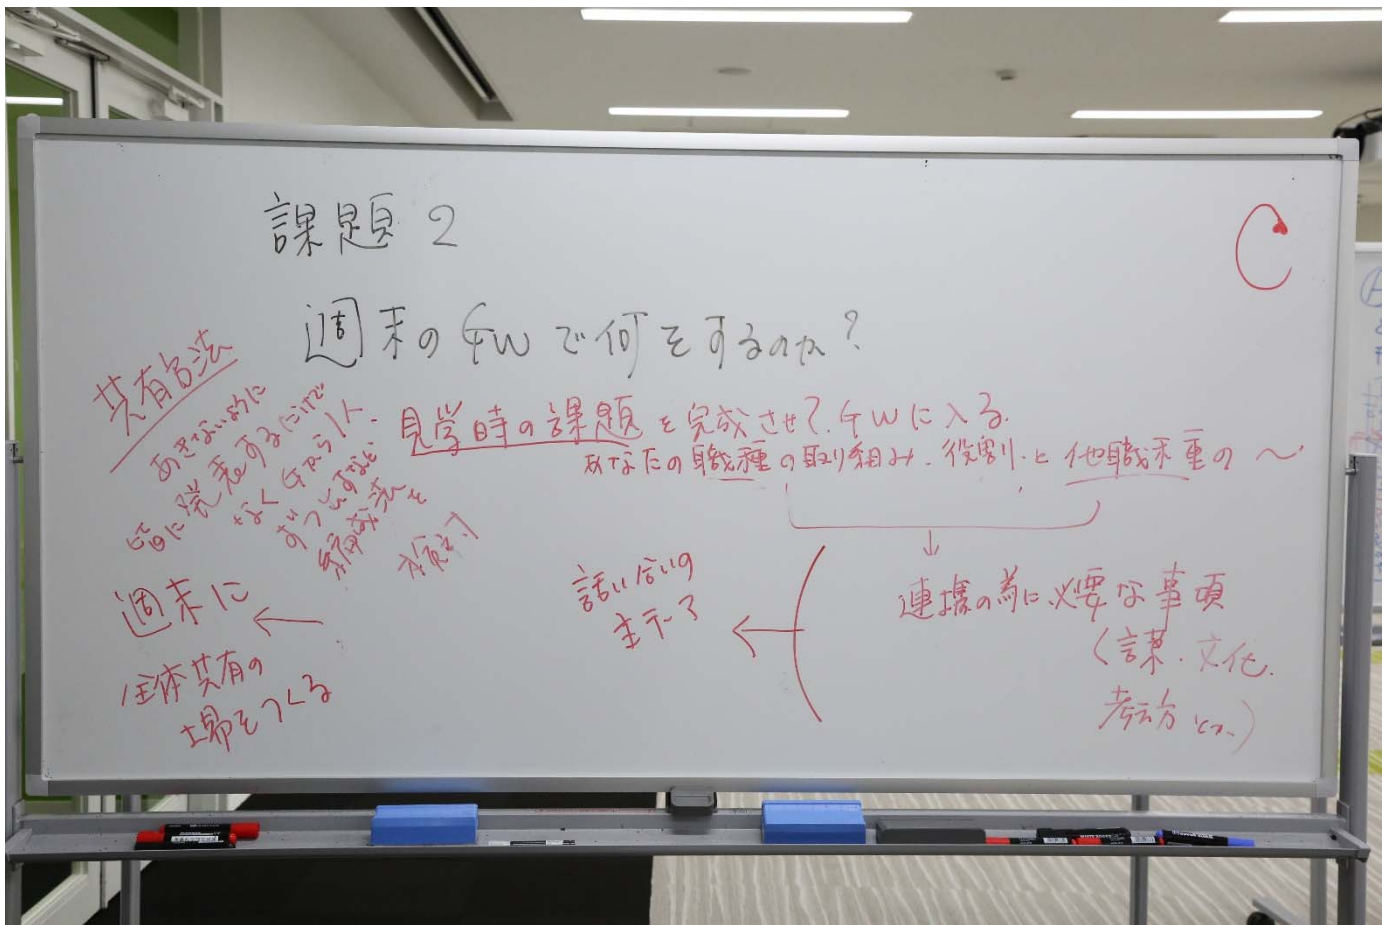 課題2
C
週末のGWで何をするのか?
共有方法
あきないように
皆に発表するだけで
なくGから1人
ずつ出すなど
編成法を
検討
見学時の課題を完成させて、GWに入る。
あなたの職種の取り組み、役割、と他職種の〜
連携の為に必要な事項
(言葉、文化、
考え方 etc.)
話し合いの
主テーマ
週末に
全体共有の
場をつくる